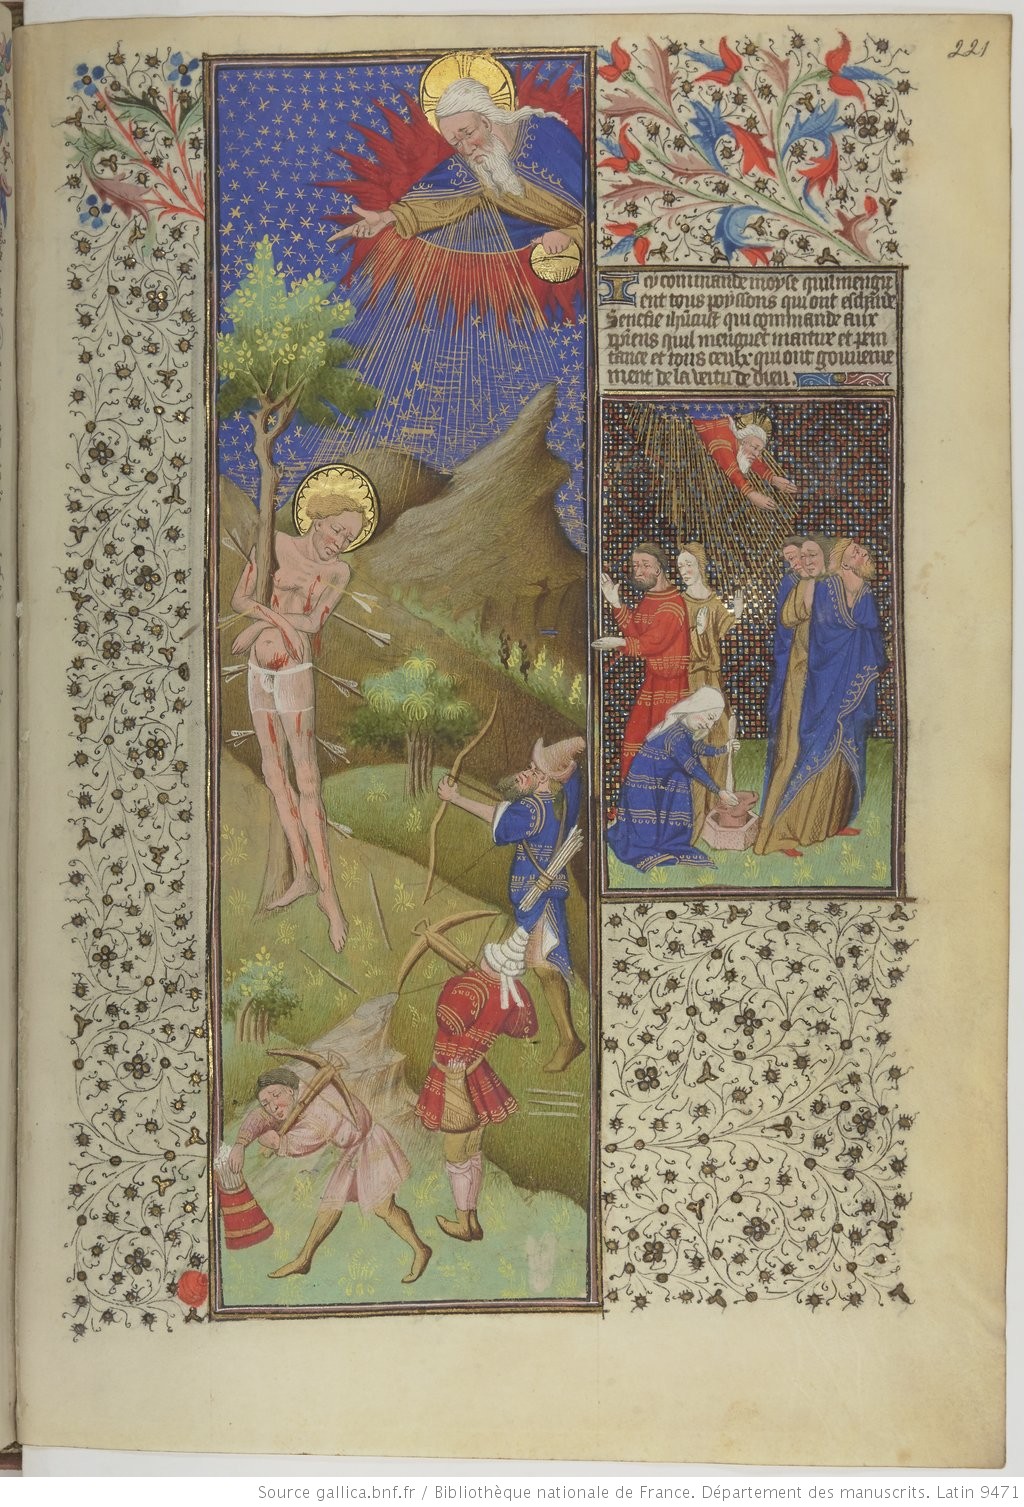 221
Icy commande moyse quil mengu
ent tous poyssons qui ont eschaide
Senefie ihucrist qui commande aux
xpiens quil menguet martire et peni
tance et tous ceulx qui ont gouverne
ment de la vertu de dieu.
Source gallica.bnf.fr / Bibliothèque nationale de France. Département des manuscrits. Latin 9471